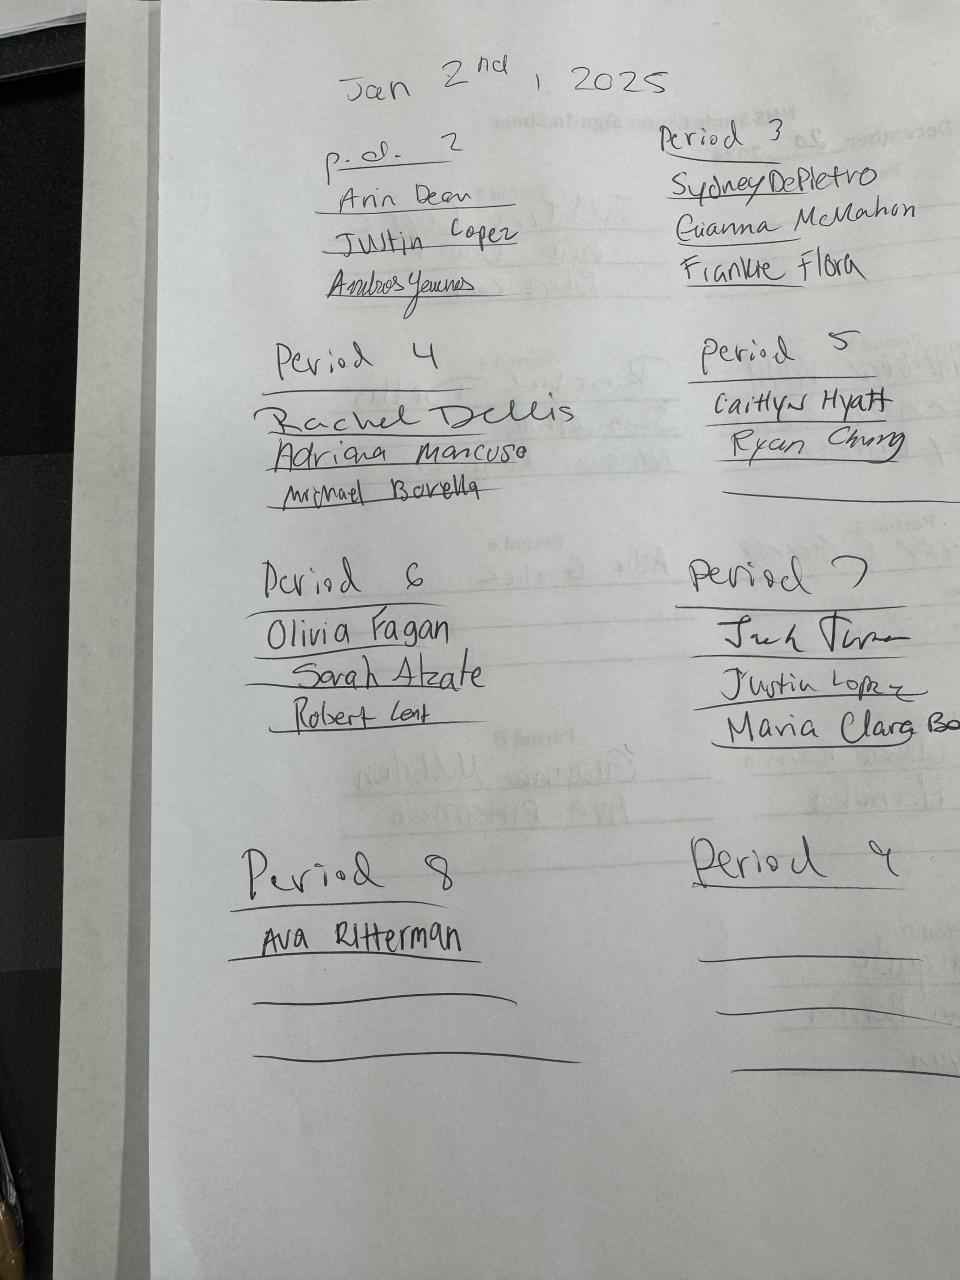 Jan 2nd, 2025
p.d. 2
Arin Dean
Justin Lopez
Period 3
Sydney DePietro
Gianna McMahon
Frankie Flora
Period 4
Rachel Dellis
Adriana Mancuso
Michael Borella
Period 5
Caitlyn Hyatt
Ryan Chung
Period 6
Olivia Fagan
Sarah Alzate
Robert Lent
Period 7
Justin Lopez
Maria Clara Bo
Period 8
Ava Ritterman
Period 9